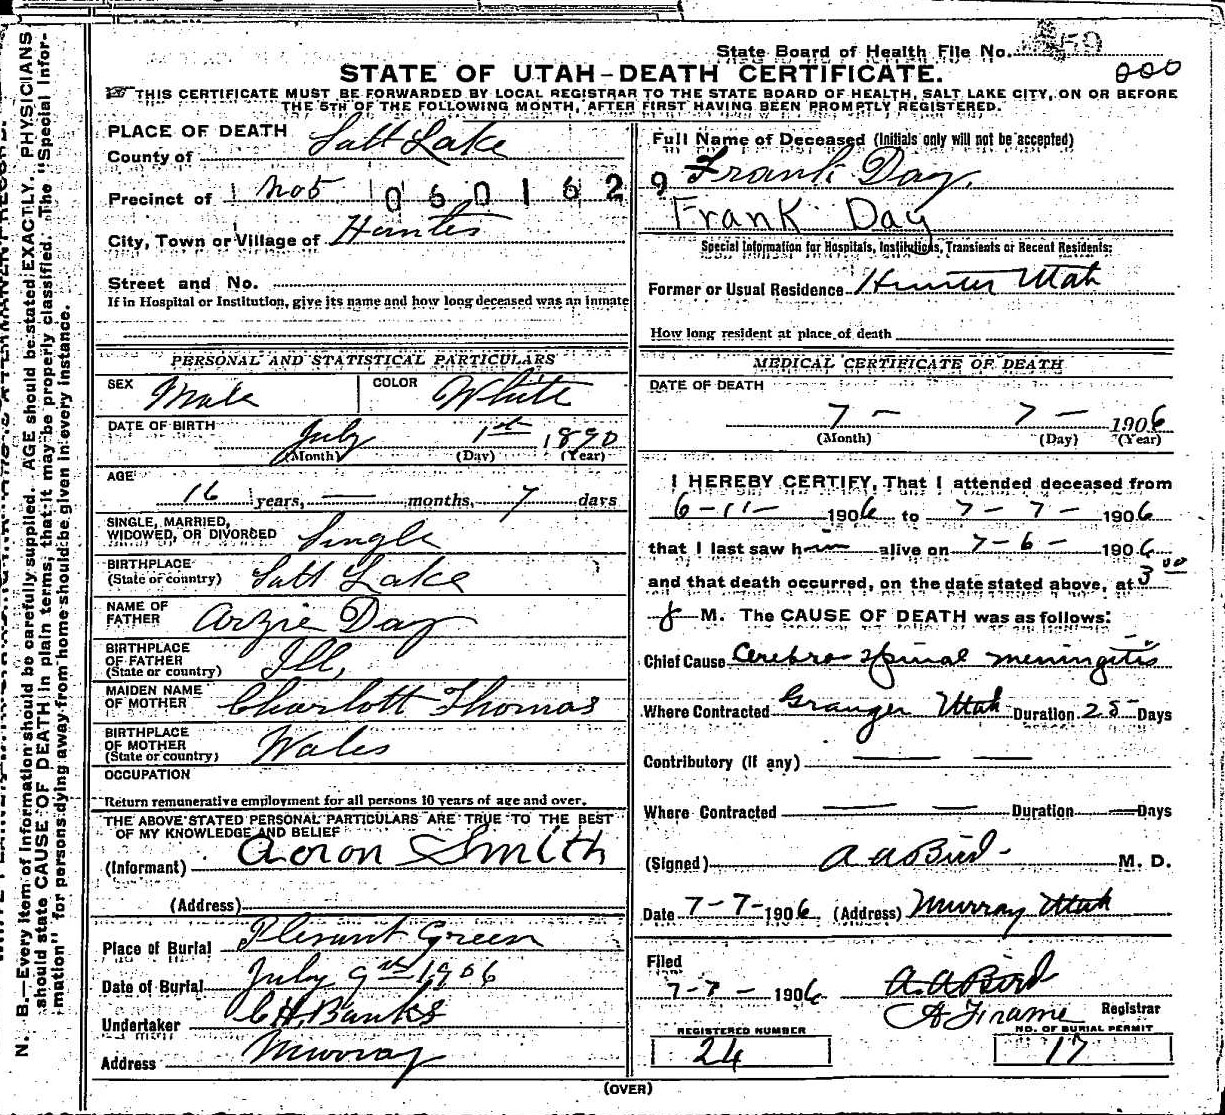 State Board of Health File No. 59
000
STATE OF UTAH-DEATH CERTIFICATE.
THIS CERTIFICATE MUST BE FORWARDED BY LOCAL REGISTRAR TO THE STATE BOARD OF HEALTH, SALT LAKE CITY, ON OR BEFORE
THE 5TH OF THE FOLLOWING MONTH, AFTER FIRST HAVING BEEN PROMPTLY REGISTERED.
PLACE OF DEATH
County of Salt Lake
Precinct of No 5 0601629
City, Town or Village of Hunter
Street and No.
If in Hospital or Institution, give its name and how long deceased was an inmate
PERSONAL AND STATISTICAL PARTICULARS
SEX Male COLOR White
DATE OF BIRTH July 1st 1890
(Month) (Day) (Year)
AGE
16 years, — months, 7 days
SINGLE, MARRIED,
WIDOWED, OR DIVORCED Single
BIRTHPLACE
(State or country) Salt Lake
NAME OF
FATHER Arzie Day
BIRTHPLACE
OF FATHER
(State or country) Ill.
MAIDEN NAME
OF MOTHER Charlott Thomas
BIRTHPLACE
OF MOTHER
(State or country) Wales
OCCUPATION
Return remunerative employment for all persons 10 years of age and over.
THE ABOVE STATED PERSONAL PARTICULARS ARE TRUE TO THE BEST
OF MY KNOWLEDGE AND BELIEF
(Informant) Aoron Smith
(Address)
Place of Burial Plesant Green
Date of Burial July 9th 1906
Undertaker C.H. Banks
Address Murray
Full Name of Deceased (Initials only will not be accepted)
Frank Day.
Frank Day
Special Information for Hospitals, Institutions, Transients or Recent Residents:
Former or Usual Residence Hunter Utah
How long resident at place of death
MEDICAL CERTIFICATE OF DEATH
DATE OF DEATH
7 — 7 — 1906
(Month) (Day) (Year)
I HEREBY CERTIFY, That I attended deceased from
6-11- 1906 to 7-7- 1906
that I last saw him alive on 7-6- 1906
and that death occurred, on the date stated above, at 3 00
M. The CAUSE OF DEATH was as follows:
Chief Cause Cerebro spinal meningitis
Where Contracted Granger Utah Duration 25 Days
Contributory (if any) — —
Where Contracted — — Duration — Days
(Signed) A A Bird M. D.
Date 7-7-1906 (Address) Murray Utah
Filed
7-7- 1906 A. A Bird
A Frame Registrar
REGISTERED NUMBER
24
NO. OF BURIAL PERMIT
17
(OVER)
N. B.—Every item of information should be carefully supplied. AGE should be stated EXACTLY. PHYSICIANS
should state CAUSE OF DEATH in plain terms, that it may be properly classified. The "Special Infor-
mation" for persons dying away from home should be given in every instance.